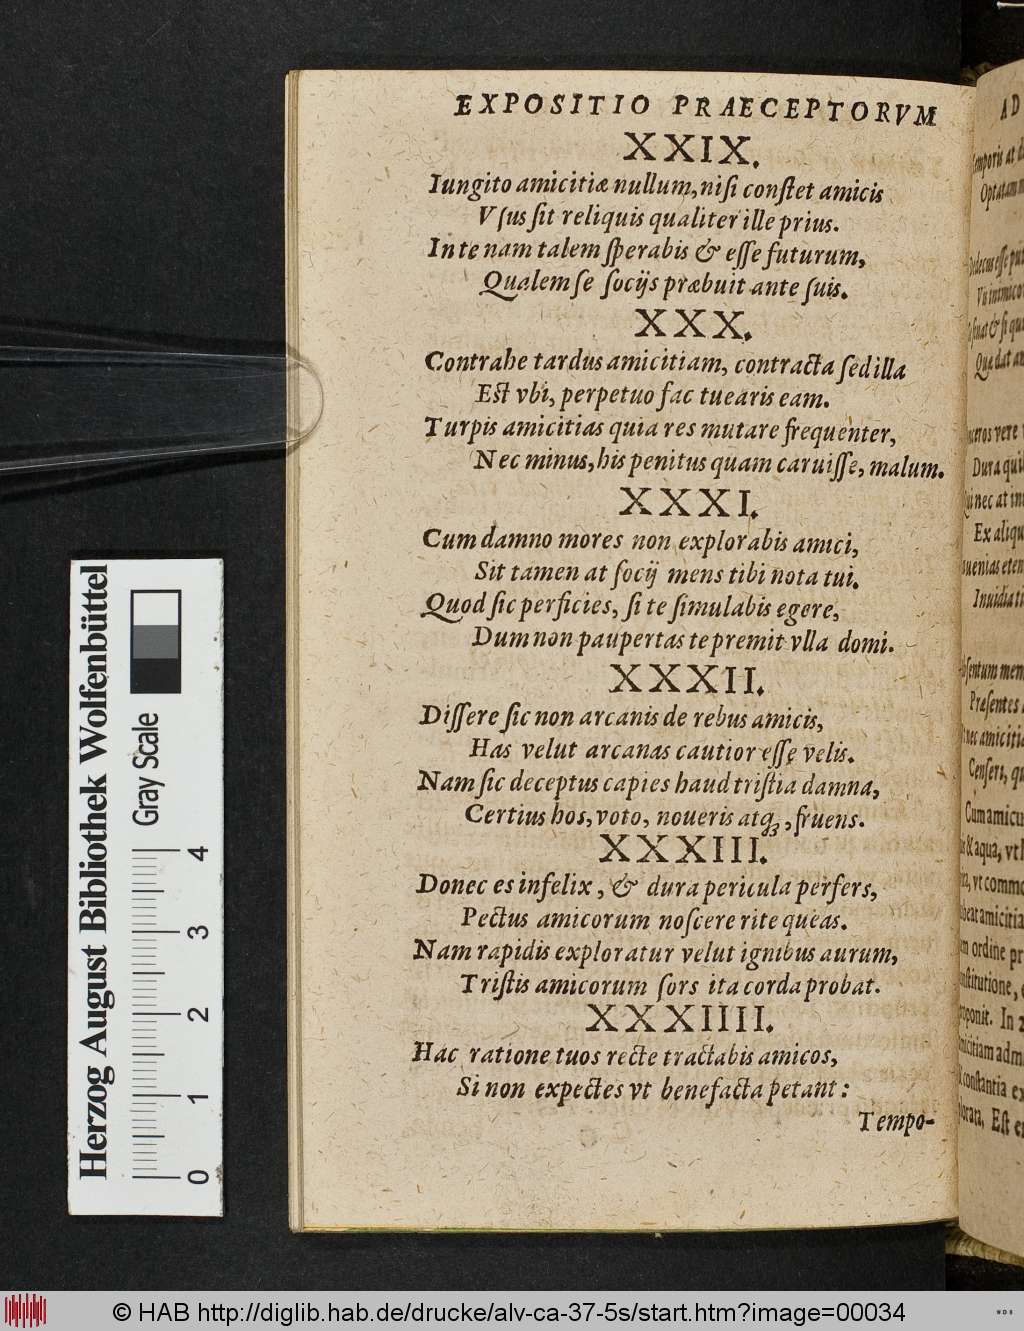 EXPOSITIO PRAECEPTORVM
XXIX.
Iungito amicitiæ nullum, nisi constet amicis
Vsus sit reliquis qualiter ille prius.
In te nam talem sperabis & esse futurum,
Qualem se socijs præbuit ante suis.
XXX.
Contrahe tardus amicitiam, contracta sed illa
Est vbi, perpetuo fac tuearis eam.
Turpis amicitias quia res mutare frequenter,
Nec minus, his penitus quam caruisse, malum.
XXXI.
Cum damno mores non explorabis amici,
Sit tamen at socij mens tibi nota tui.
Quod sic perficies, si te simulabis egere,
Dum non paupertas te premit vlla domi.
XXXII.
Dissere sic non arcanis de rebus amicis,
Has velut arcanas cautior esse velis.
Nam sic deceptus capies haud tristia damna,
Certius hos, voto, noueris atq;, fruens.
XXXIII.
Donec es infelix, & dura pericula perfers,
Pectus amicorum noscere rite queas.
Nam rapidis exploratur velut ignibus aurum,
Tristis amicorum sors ita corda probat.
XXXIIII.
Hac ratione tuos recte tractabis amicos,
Si non expectes vt benefacta petant:
Tempo-
AD
Optatam
Dura
nec at
Ex
Inuidia
Præsentes
nec
Cum
& aqua, vt
vt
ordine
In
Est
Herzog August Bibliothek Wolfenbüttel
Gray Scale
0 1 2 3 4
© HAB http://diglib.hab.de/drucke/alv-ca-37-5s/start.htm?image=00034